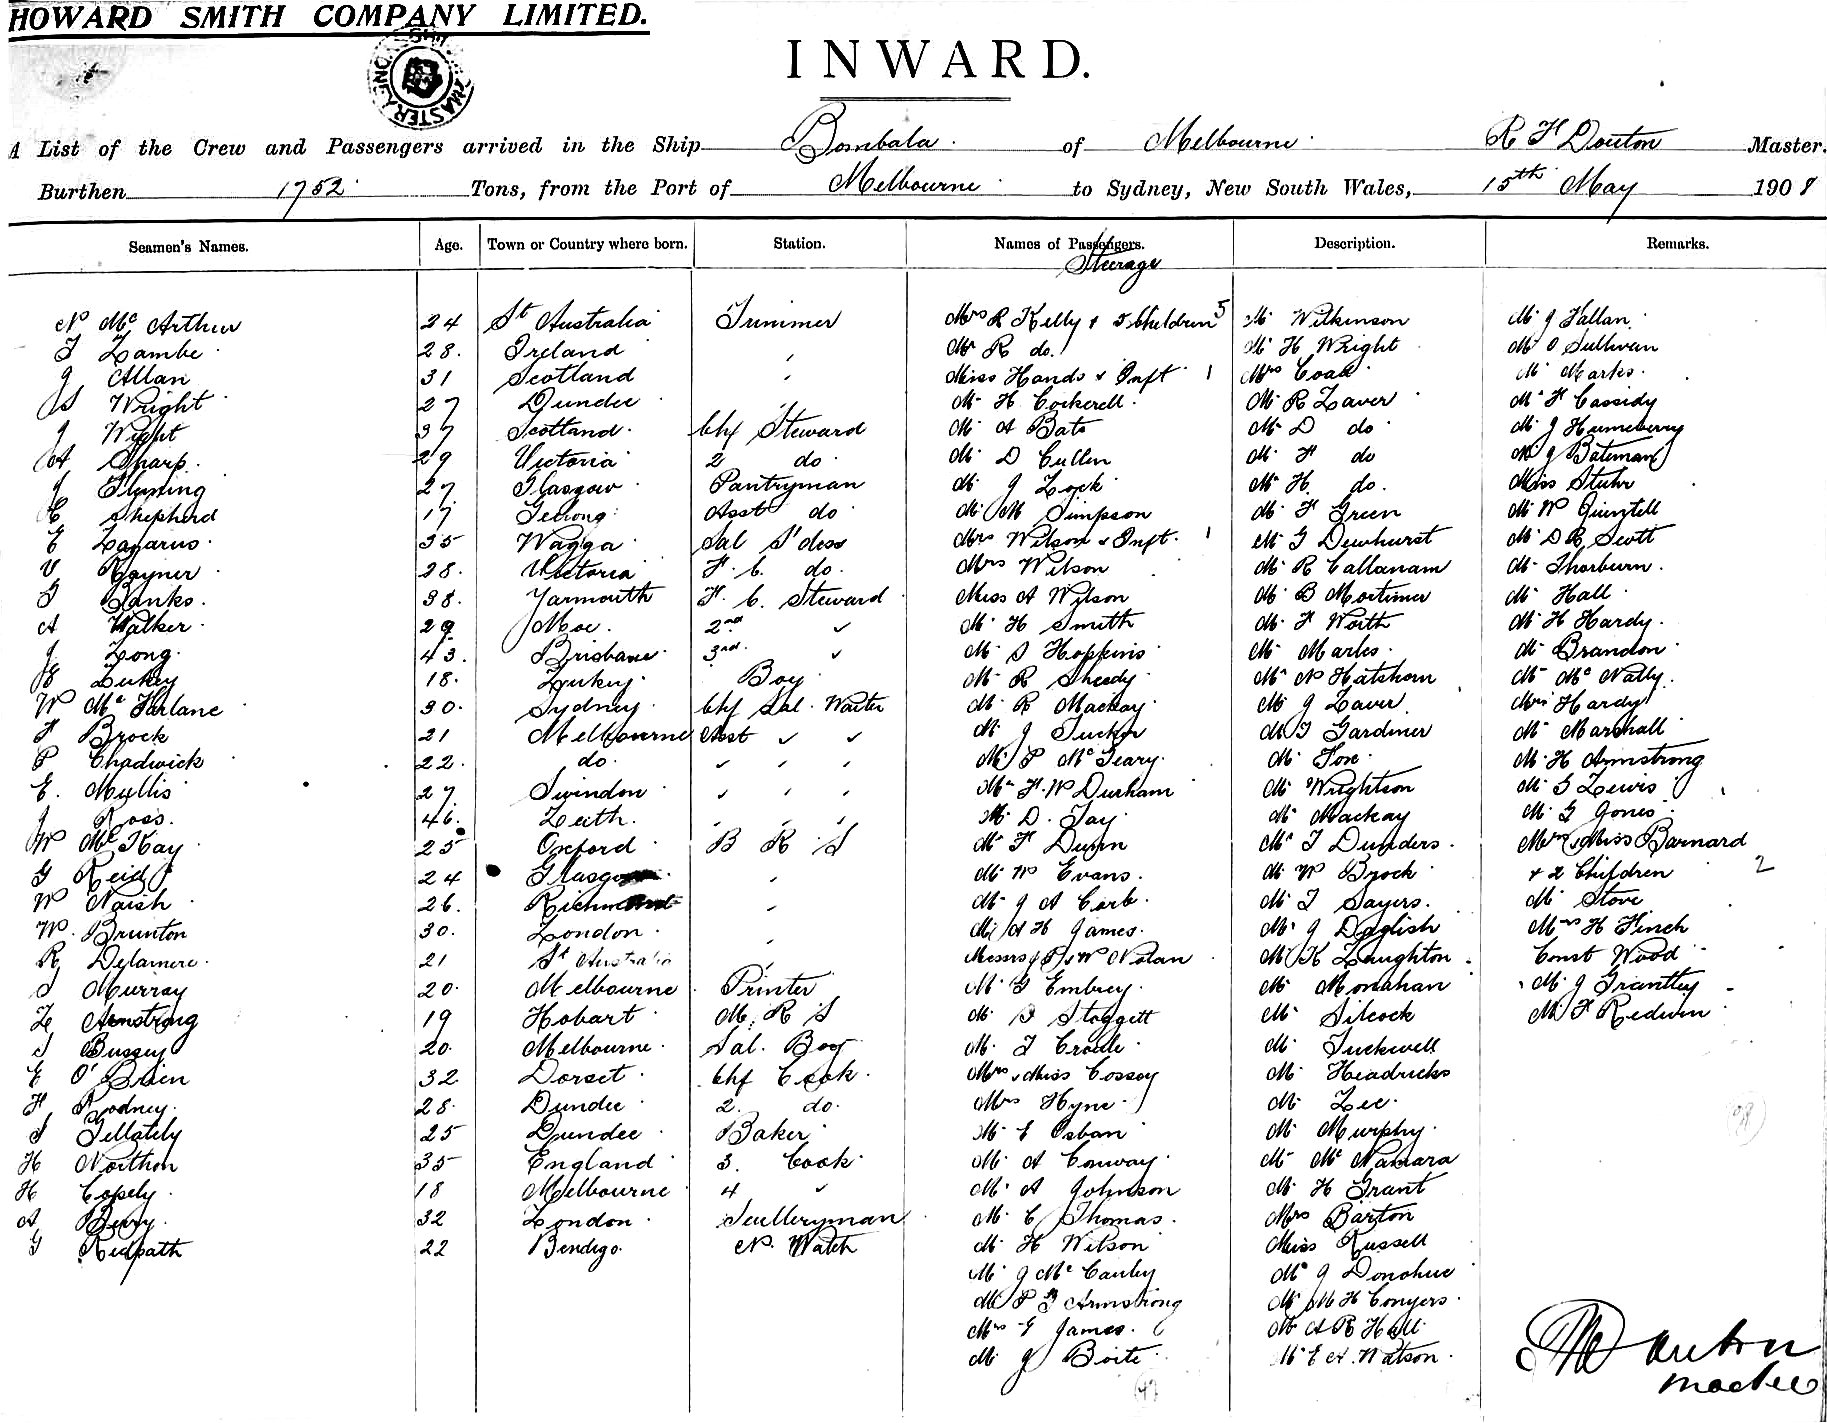 HOWARD SMITH COMPANY LIMITED.
INWARD.
A List of the Crew and Passengers arrived in the Ship Bombala of Melbourne R F Douton Master.
Burthen 1752 Tons, from the Port of Melbourne to Sydney, New South Wales, 15th May 1908
Seamen's Names. Age. Town or Country where born. Station. Names of Passengers. Description. Remarks.
Steerage
N Mc Arthur 24 St Australia Trimmer Mrs R Kelly & 5 Children 5 Mr Wilkinson Mr J Fallan
T Lambe 28. Ireland Mr R do. Mr H Wright Mr O Sullivan
J Allan 31 Scotland Miss Hands & Inft 1 Mrs Coad Mr Marks.
S Wright 27 Dundee Mr H Cockerell. Mr R Laver Mr F Cassidy
J Wight 37 Scotland. Chf Steward Mr A Bate Mr D do Mr J Humeberry
A Sharp. 29 Victoria 2 do Mr D Cullen Mr F do Mr J Bateman
J Fleming 27 Glasgow Pantryman Mr J Lock Mr H. do. Miss Stuhr
C Shepherd 17 Geelong Asst do Mr M Simpson Mr F Green Mr W Quinztell
E Lazarus 35 Wagga Sal S'dess Mrs Wilson & Inft. 1 Mr G Dewhurst Mr D R Scott
V Rayner 28. Victoria F. C. do. Mrs Wilson Mr R Callanam Mr Thorburn.
T Banks. 38. Yarmouth F. C. Steward Miss A Wilson Mr B Mortimer Mr Hall
A Walker 29 Moe. 2nd ✓ Mr H Smith Mr F Worth Mr H Hardy.
J Long. 43. Brisbane 3rd. ✓ Mr S Hopkins Mr Marks. Mr Brandon
Lukey 18. Lukey Boy Mr R Sheedy. Mr N Hatshorn Mr Mc Nally.
W Mc Farlane 30. Sydney. Chf Sal. Waiter Mr R Mackay Mr J Laver Mrs Hardy
F Brock 21 Melbourne Asst ✓ ✓ Mr J Tucker Mr T Gardiner Mr Marshall
P Chadwick 22. do. Mr P McGeary. Mr Fox Mr H Armstrong
E. Mullis 27 Swindon Mr F. W Durham Mr Wrightson Mr G Lewis
J Ross. 46. Leith. Mr D. Jay Mr Mackay Mr G Jones
W Mc Kay 25 Oxford B R S Mr F Dunn Mr T Dunders. Mrs & Miss Barnard
G Reid 24 Glasgow Mr W Evans. Mr W Brock & 2 Children 2
W Naish 26. Richmond Mr J A Carb. Mr T Sayers. Mr Stove
W. Brunton 30. London. Mr A H James. Mr J Dalglish Mrs H Finch
R Delamere 21 St Australia Messrs P & W Nolan Mr K Laughton. Const Wood
S Murray 20 Melbourne Printer Mr G Embrey. Mr Monahan Mr J Grantley
L Armstrong 19 Hobart M. R S Mr S Stoggett Mr Silcock Mr F Redwin
S Bussey 20. Melbourne. Sal. Boy Mr T Croele Mr Tuckwell
E O'Brien 32 Dorset. Chf Cook. Mrs & Miss Cossey Mr Headricks
F Rodney. 28. Dundee 2. do. Mrs Hyne Mr Lee.
S Gellately 25 Dundee Baker Mr E Osban Mr Murphy.
H Northon 35 England 3. Cook Mr A Conway. Mr Mc Namara
H Copely. 18 Melbourne 4 ✓ Mr A Johnson Mr H Grant
A Berry. 32 London. Sculleryman Mr C Thomas. Mrs Barton
G Redpath 22 Bendigo. N. Watch Mr H Wilson Miss Russell
Mr J Mc Cauley Mr J Donohue
Mr P J Armstrong Mr M H Conyers.
Mrs G James. Mr A R Hall
Mr J Boite Mr E A. Watson.
Douton
Master